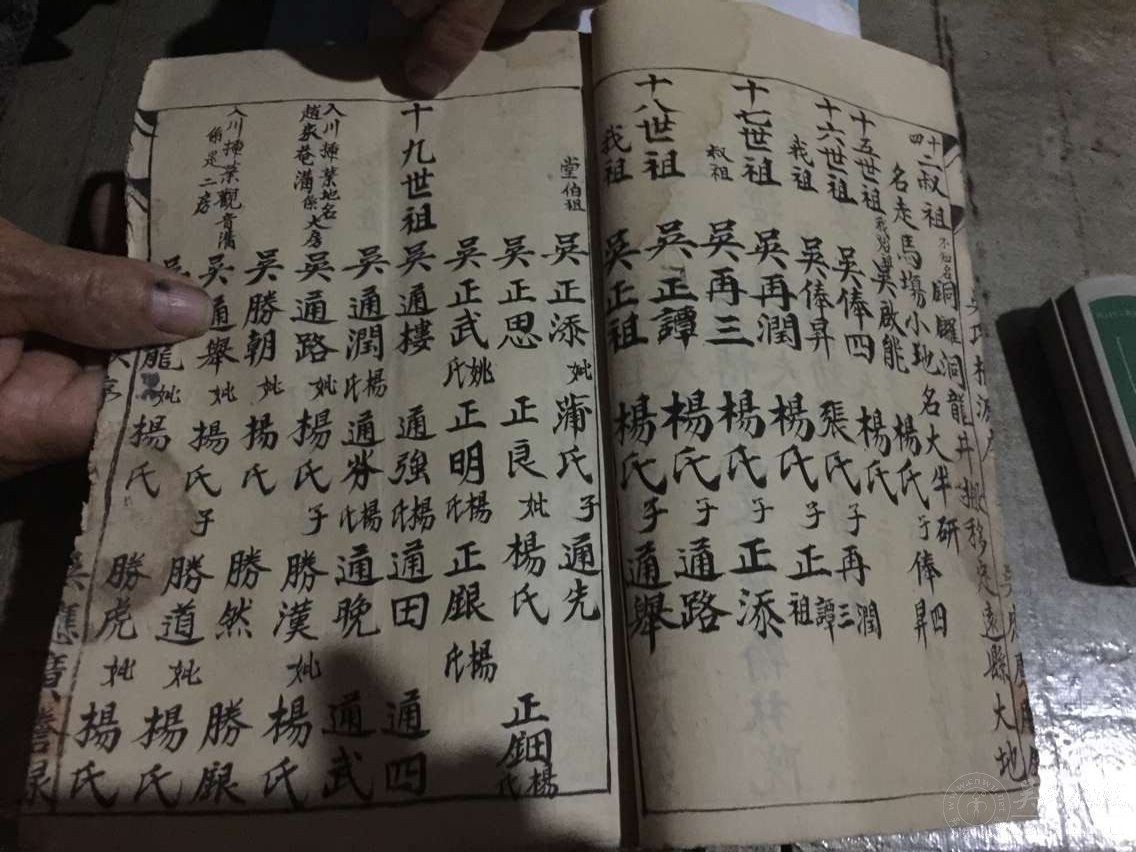 十四二叔祖 不知名 洞龍井搬移定遠縣大地
名走馬塲小地名大牛研
十五世祖 吳啟能 楊氏 子俸四 昇
十六世祖 吳俸四 楊氏
我祖 吳俸昇 張氏 子再潤 三 譚
十七世祖 吳再潤 楊氏 子正祖
叔祖 吳再三 楊氏 子正添
十八世祖 吳正譚 楊氏 子通路
我祖 吳正祖 楊氏 子通舉
堂伯祖 吳正添 妣蒲氏 子通先
吳正思 正良 妣楊氏 正鈿 楊氏
吳正武 姚氏 正明 楊氏 正銀 楊氏
十九世祖 吳通樓 通強 楊氏 通田 通四
吳通潤 楊氏 通 楊氏 通晚 通武
入川揷業地名趙家菴溝係大房 吳通路 妣楊氏 子勝漢 妣楊氏
吳勝朝 妣楊氏 勝然 勝銀
入川揷業觀音溝係是二房 吳通舉 妣楊氏 子勝道 妣楊氏
吳 龍 妣楊氏 勝虎 妣楊氏
吳應廣謄录